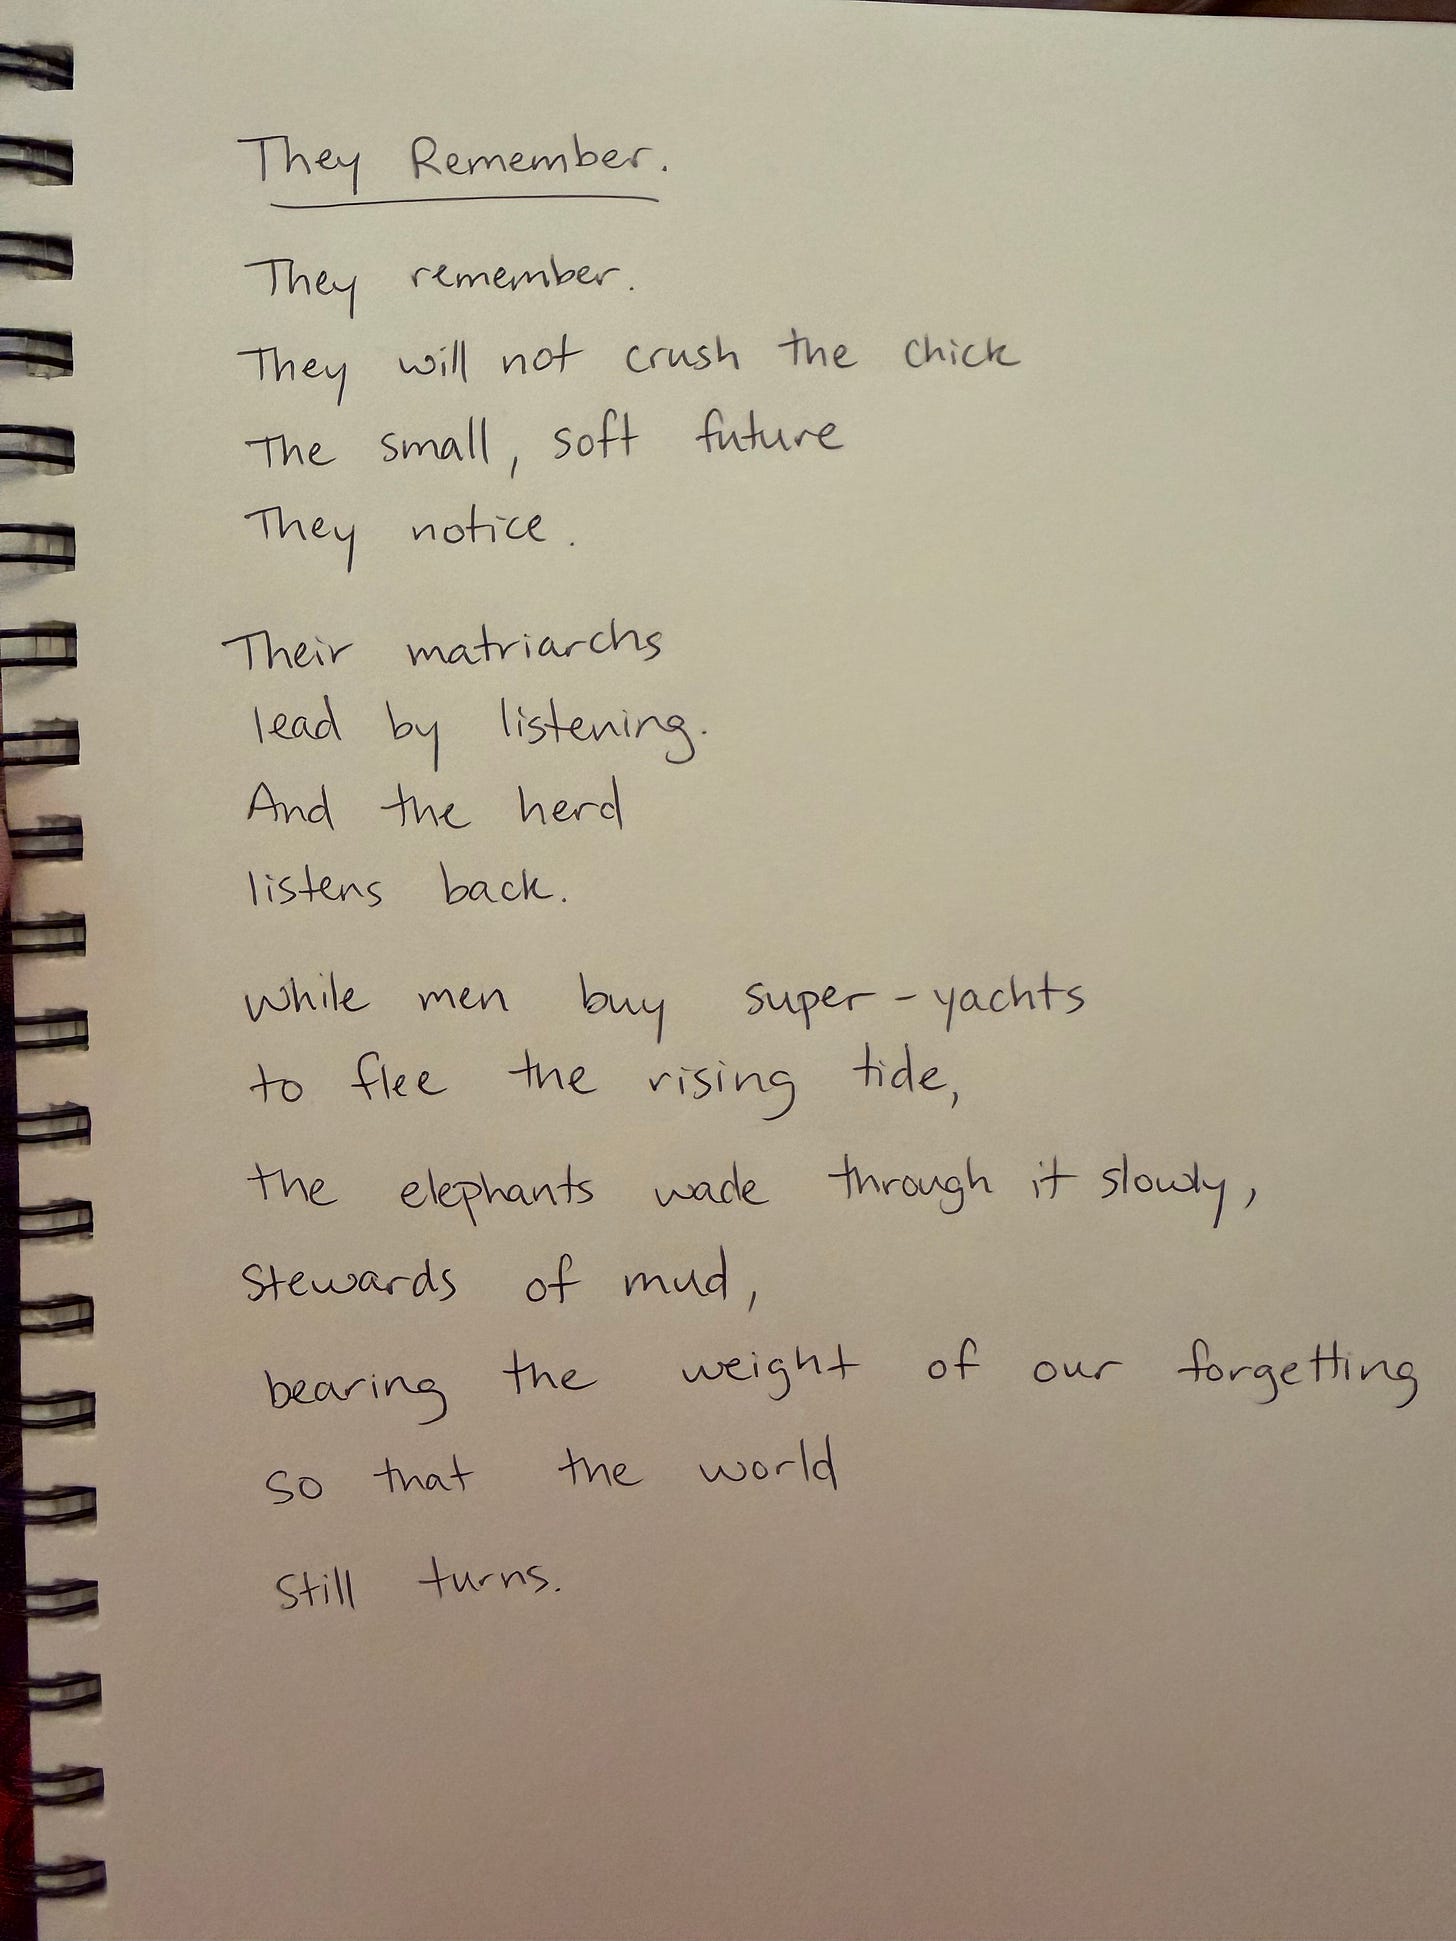 They Remember.
They remember.
They will not crush the chick
The small, soft future
They notice.
Their matriarchs
lead by listening.
And the herd
listens back.
While men buy super-yachts
to flee the rising tide,
the elephants wade through it slowly,
stewards of mud,
bearing the weight of our forgetting
so that the world
still turns.